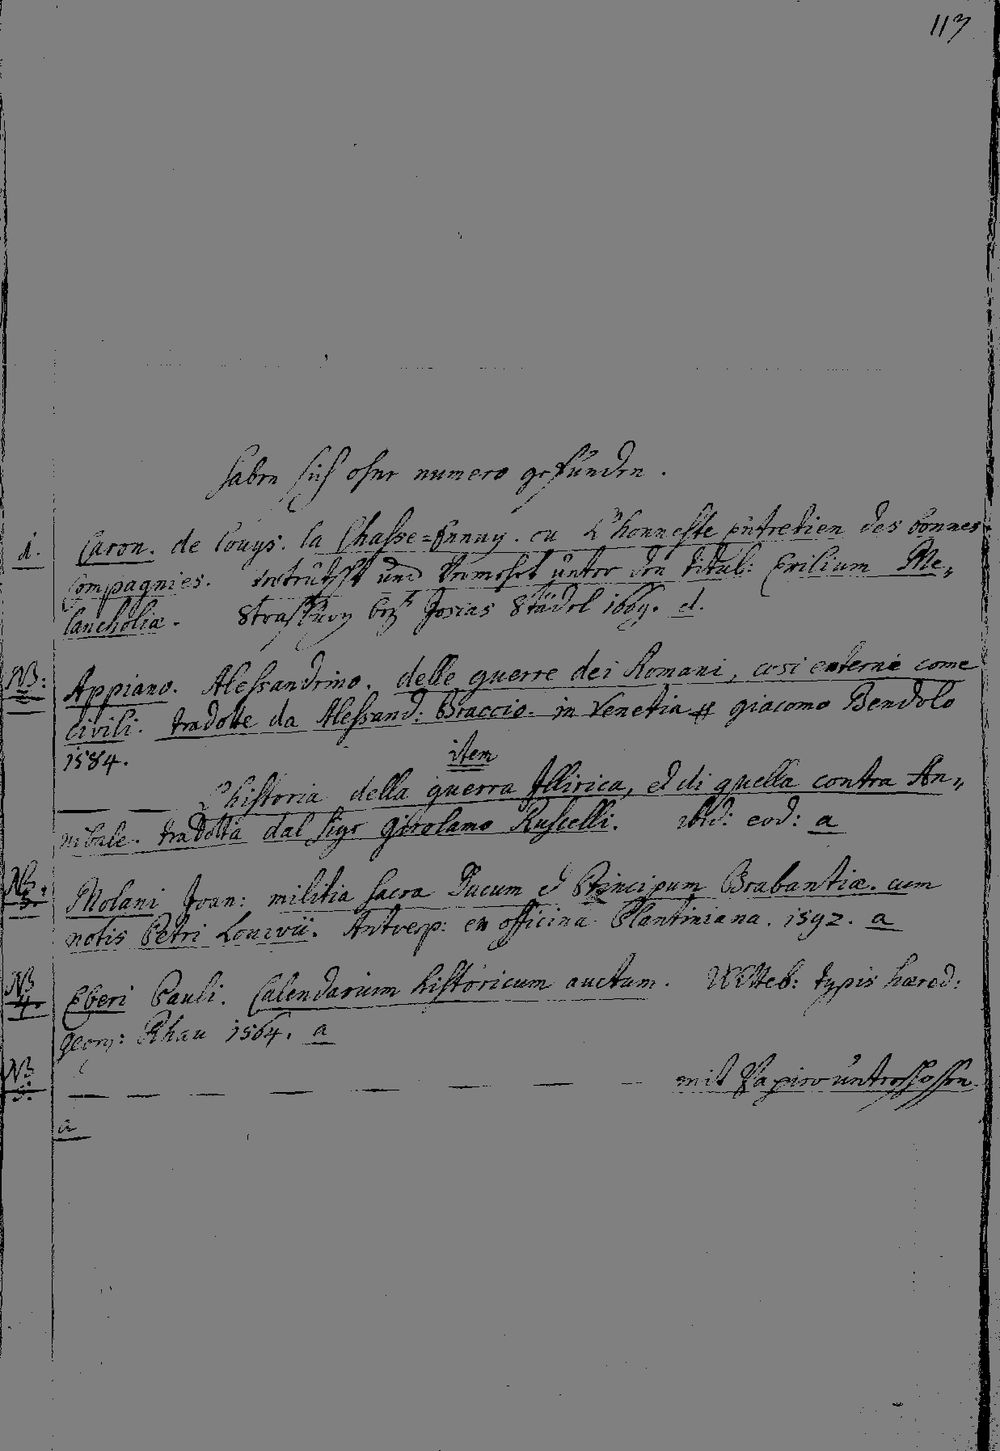 113
haben sich ohne numero gefunden.
1. Caron. de Louys. la Chasse=Ennuy. ou L'honneste entretien des bonnes
Compagnies. verteutscht und vermehrt unter den titul: Exilium Me„
lancholiæ. Strasburg bey Josias Städel 1669. d.
NB: Appiano. Alessandrino. delle guerre dei Romani, cosi externe come
civili. tradotte da Alessand: Braccio. in Venetia giacomo Bendolo
1584.
item
L'historia della guerra Illirica, et di quella contra An„
nibale. tradotta dal sigr Girolamo Ruscelli. ibid: eod: a
NB 3. Molani Joan: militia sacra Ducum et Principum Brabantiæ. cum
notis Petri Louwii. Antverp: ex officina Plantiniana. 1592. a
NB 4. Eberi Pauli. Calendarium historicum auctum. Witteb: typis hæred:
georg: Rhau 1564. a
NB 5. — — — — — — — mit Papier unterschossen
a